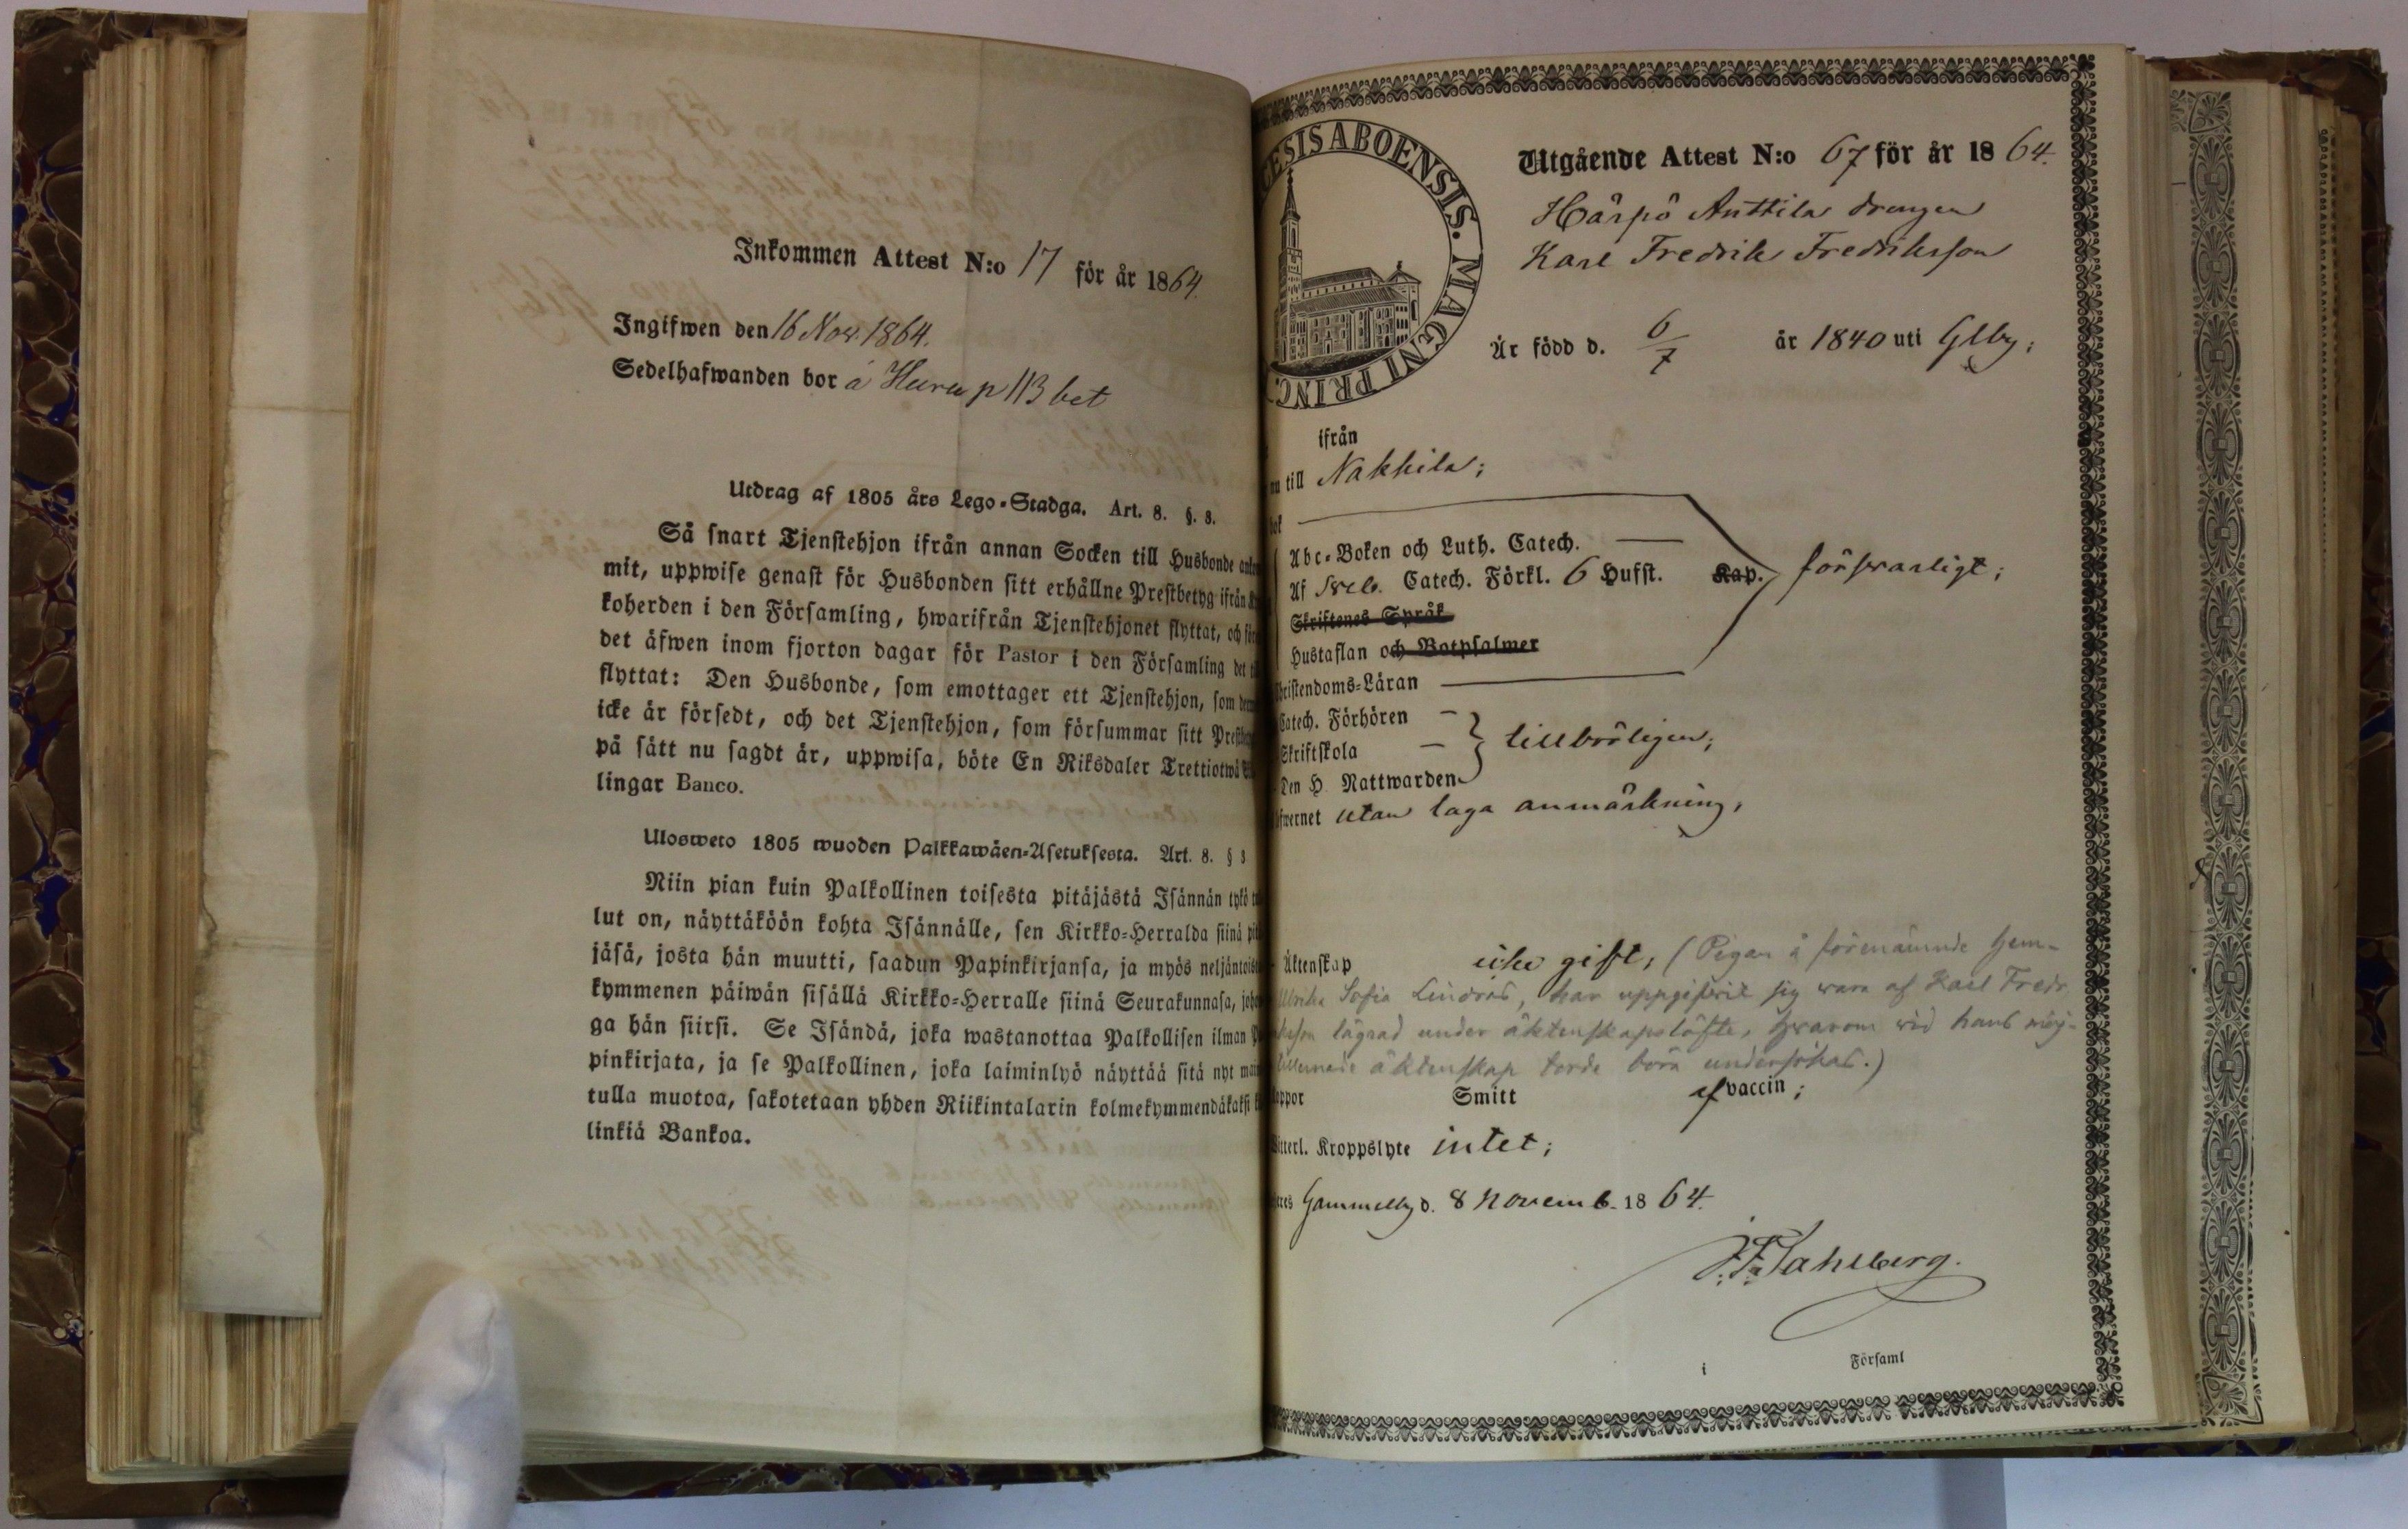 Inkommen Attest N:o 17 för år 1864.
Ingifwen den 16 Nov. 1864.
Sedelhafwanden bor å Huru p 113 bet
Utdrag af 1805 års Lego-Stadga. Art. 8. §. 8.
Så snart Tjenstehjon ifrån annan Socken till Husbonde
mit, uppwise genast för Husbonden sitt erhållne Prestbetyg ifrån
koherden i den Församling, hwarifrån Tjenstehjonet flyttat, och
det äfwen inom fjorton dagar för Pastor i den Församling det
flyttat: Den Husbonde, som emottager ett Tjenstehjon, som
icke är försedt, och det Tjenstehjon, som försummar sitt
på sätt nu sagdt är, uppwisa, böte En Riksdaler Trettiotwå
lingar Banco.
Ulosweto 1805 wuoden Palkkawäen-Asetuksesta. Art. 8. §
Niin pian kuin Palkollinen toisesta pitäjästä Isännän tykö
lut on, näyttäköön kohta Isännälle, sen Kirkko-Herralda siinä
jäsä, josta hän muutti, saadun Papinkirjansa, ja myös
kymmenen päiwän sisällä Kirkko-Herralle siinä Seurakunnasa,
ga hän siirsi. Se Isändä, joka wastanottaa Palkollisen ilman
pinkirjata, ja se Palkollinen, joka laiminlyö näyttää sitä nyt
tulla muotoa, sakotetaan yhden Riikintalarin kolmekymmendäkaksi
linkiä Bankoa.
ESIS ABOENSIS. MAGNI PRINC.
Utgående Attest N:o 67 för år 1864.
Härpö Anttila drengen
Karl Fredrik Fredriksson
Är född d. 6/7 år 1840 uti Glby;
ifrån
till Nakkila;
bok
Abc-Boken och Luth. Catech.
Af Sveb. Catech. Förkl. 6 Hufst. Kap. försvarligt;
Skriftenes Språk
Hustaflan och Botpsalmer
Christendoms-Läran
Catech. Förhören
Skriftskola tillbörligen;
Den H. Nattwarden
utan laga anmärkning,
Äktenskap icke gift, (Pigan å förenämnde hem-
Ulrika Sofia Lindros, har uppgifvit sig vara af Karl Fredr.
lägrad under äktenskapslöfte, hvarom vid hans
äktenskap torde böra undersökas.)
Koppor Smitt af vaccin;
Kroppslyte intet;
Gammelby d. 8 Novemb. 1864.
J. F. Sahlberg.
i Församl